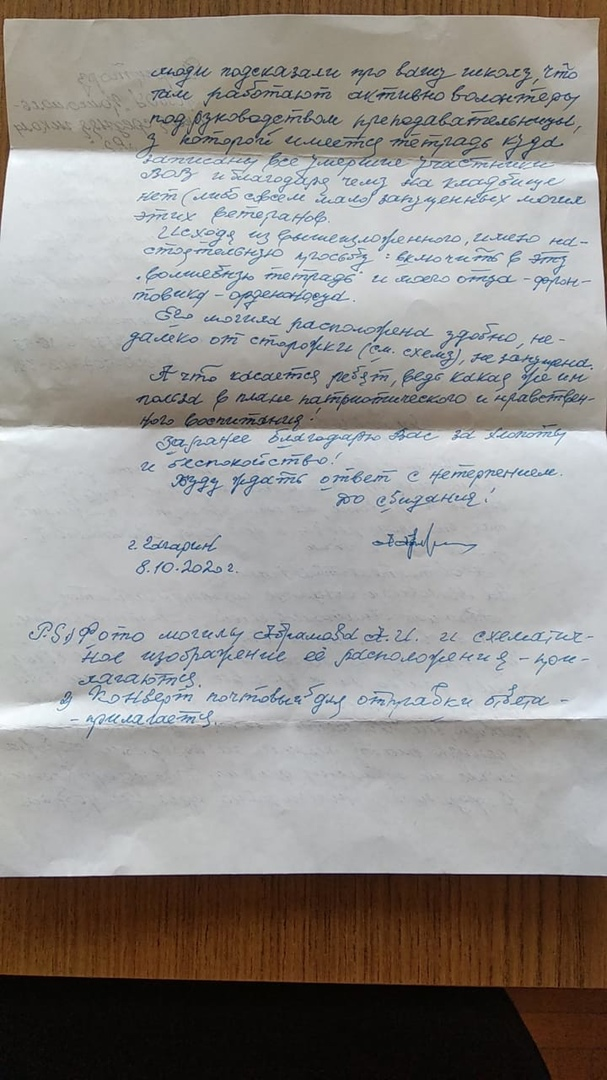 люди подсказали про вашу школу, что
там работают активно волонтеры
под руководством преподавательницы,
у которой имеется тетрадь куда
записаны все умершие участники
ВОВ и благодаря чему на кладбище
нет (либо совсем мало) запущенных могил
этих ветеранов.
Исходя из вышеизложенного, имею на-
стоятельную просьбу: включить в эту
„волшебную тетрадь" и моего отца - фрон-
товика - орденоносца.
Его могила расположена удобно, не-
далеко от сторожки (см. схему), не запущена.
А что касается ребят, ведь какая же им
польза в плане патриотического и нравствен-
ного воспитания!
Заранее благодарю Вас за хлопоты
и беспокойство!
Буду ждать ответ с нетерпением.
До свидания!
г. Гагарин
8.10.2020 г.
P.S. 1) Фото могилы Абрамова А.И. и схематич-
ное изображение её расположения - при-
лагаются.
2) Конверт почтовый для отправки ответа -
- прилагается.